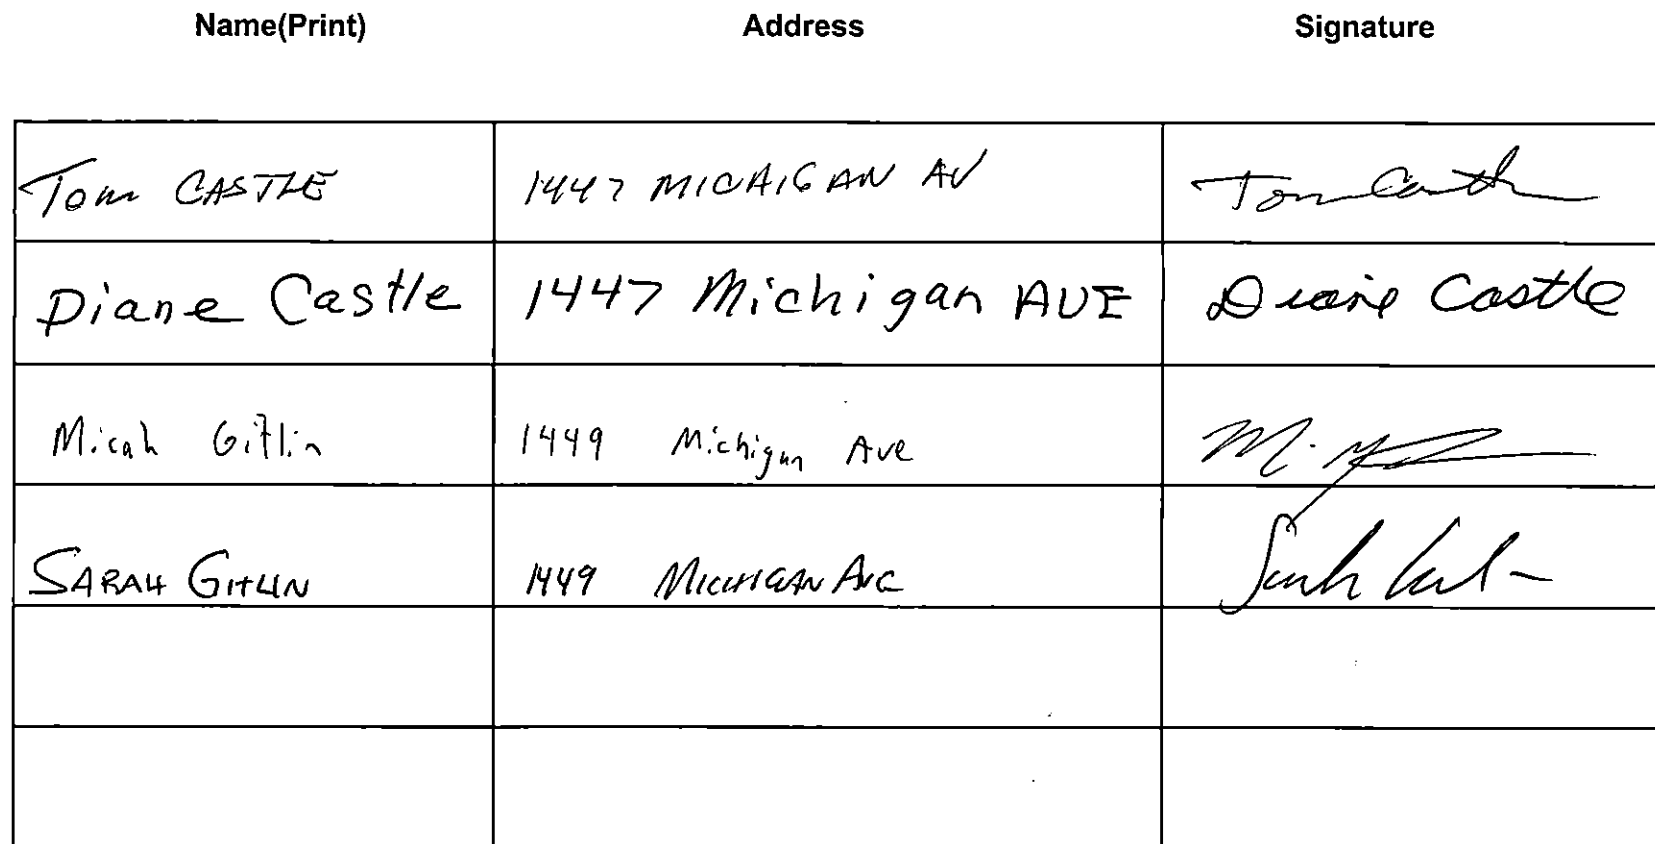 Name(Print) Address Signature
Tom CASTLE 1447 MICHIGAN AV Tom Castle
Diane Castle 1447 Michigan AVE Diane Castle
Micah Gitlin 1449 Michigan Ave
SARAH GITLIN 1449 MICHIGAN AVE Sarah